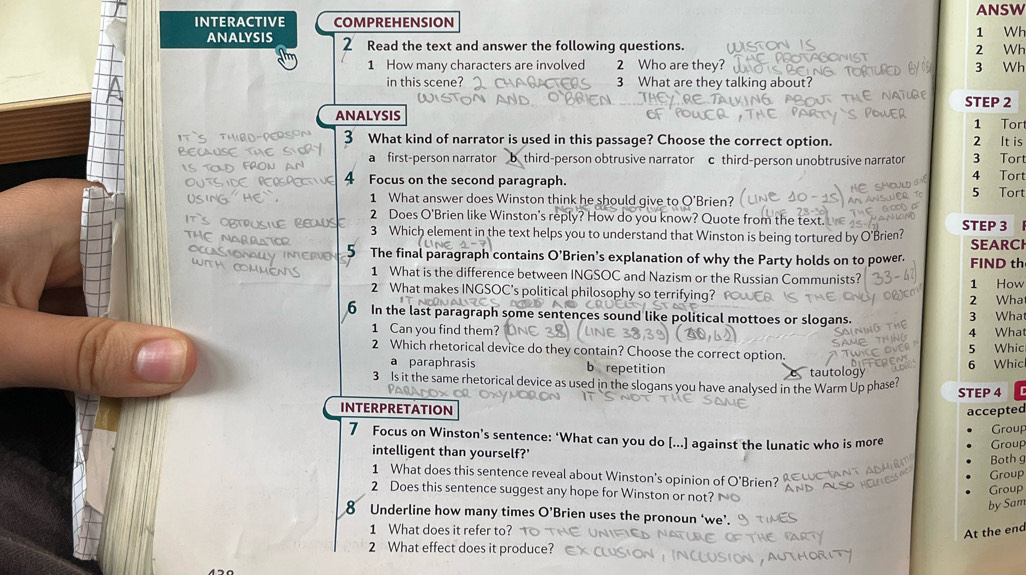 INTERACTIVE
ANALYSIS
COMPREHENSION
2 Read the text and answer the following questions.
1 How many characters are involved
in this scene? 2 CHARACTERS
WISTON AND O'BRIEN
2 Who are they? WISTON IS
THE PROTAGONIST
WHO IS BEING TORTURED BY
3 What are they talking about?
THEY'RE TALKING ABOUT THE NATURE
OF POWER, THE PARTY'S POWER
ANALYSIS
3 What kind of narrator is used in this passage? Choose the correct option.
a first-person narrator b third-person obtrusive narrator c third-person unobtrusive narrator
IT'S THIRD-PERSON
BECAUSE THE STORY
IS TOLD FRON AN
OUTSIDE PERSPECTIVE
USING "HE".
IT'S OBTRUSIVE BECAUSE
THE NARRATOR
OCCASIONALLY INTERVENES
WITH COMMENTS
4 Focus on the second paragraph.
1 What answer does Winston think he should give to O'Brien? (LINE 10-15)
HE SHOULD
AN ANSWER TO
THE GOOD OF
MANKIND
2 Does O'Brien like Winston's reply? How do you know? Quote from the text.
3 Which element in the text helps you to understand that Winston is being tortured by O'Brien?
(LINE 1-7)
5 The final paragraph contains O'Brien's explanation of why the Party holds on to power.
1 What is the difference between INGSOC and Nazism or the Russian Communists?
2 What makes INGSOC's political philosophy so terrifying? POWER IS THE ONLY
IT NORMALIZES AND CRUELTY STATE
6 In the last paragraph some sentences sound like political mottoes or slogans.
1 Can you find them? (LINE 38) (LINE 38,39)
2 Which rhetorical device do they contain? Choose the correct option.
a paraphrasis b repetition c tautology
SAINING THE
SAME THING
TWICE OVER
DIFFERENT
3 Is it the same rhetorical device as used in the slogans you have analysed in the Warm Up phase?
PARADOX OR OXYNORON IT'S NOT THE SAME
INTERPRETATION
7 Focus on Winston's sentence: 'What can you do [...] against the lunatic who is more
intelligent than yourself?'
1 What does this sentence reveal about Winston's opinion of O'Brien? RELUCTANT
AND ALSO
2 Does this sentence suggest any hope for Winston or not? NO
8 Underline how many times O'Brien uses the pronoun 'we'. 9 TIMES
1 What does it refer to? TO THE UNIFIED NATURE OF THE PARTY
2 What effect does it produce? EXCLUSION, INCLUSION, AUTHORITY
ANSW
1 Wh
2 Wh
3 Wh
STEP 2
1 Tort
2 It is
3 Tort
4 Tort
5 Tort
STEP 3
SEARCH
FIND th
1 How
2 What
3 What
4 What
5 Whic
6 Which
STEP 4
accepted
• Group
• Group
• Both g
• Group
• Group
by Sam
At the end